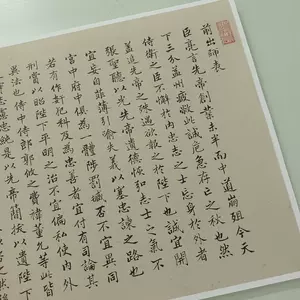 前出師表
臣亮言先帝創業未半而中道崩殂今天
下三分益州疲敝此誠危急存亡之秋也然
侍衛之臣不懈於內忠志之士忘身於外者
追先帝之殊遇欲報之於陛下也誠宜開
張聖聽以光先帝遺德恢弘志士之氣不
宜妄自菲薄引喻失義以塞忠諫之路也
宮中府中俱為一體陟罰臧否不宜異同
若有作奸犯科及為忠善者宜付有司論其
刑賞以昭陛下平明之治不宜偏私使內外
異法也侍中侍郎郭攸之費禕董允等此皆
志慮忠純是以先帝簡拔以遺陛下